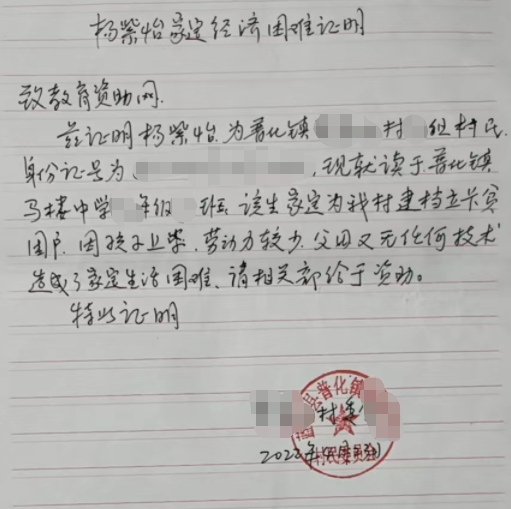 杨紫怡家定经济困难证明
致教育资助网.
兹证明杨紫怡.为普化镇村组村民.
身份证号为,现就读于普化镇
马楼中学年级班.该生家定为我村建档立卡贫
困户.因孩子上学.劳动力较少.父母又无任何技术
造成了家定生活困难、请相关部给于资助。
特此证明
县普化镇
村委
2022年
村民委员会